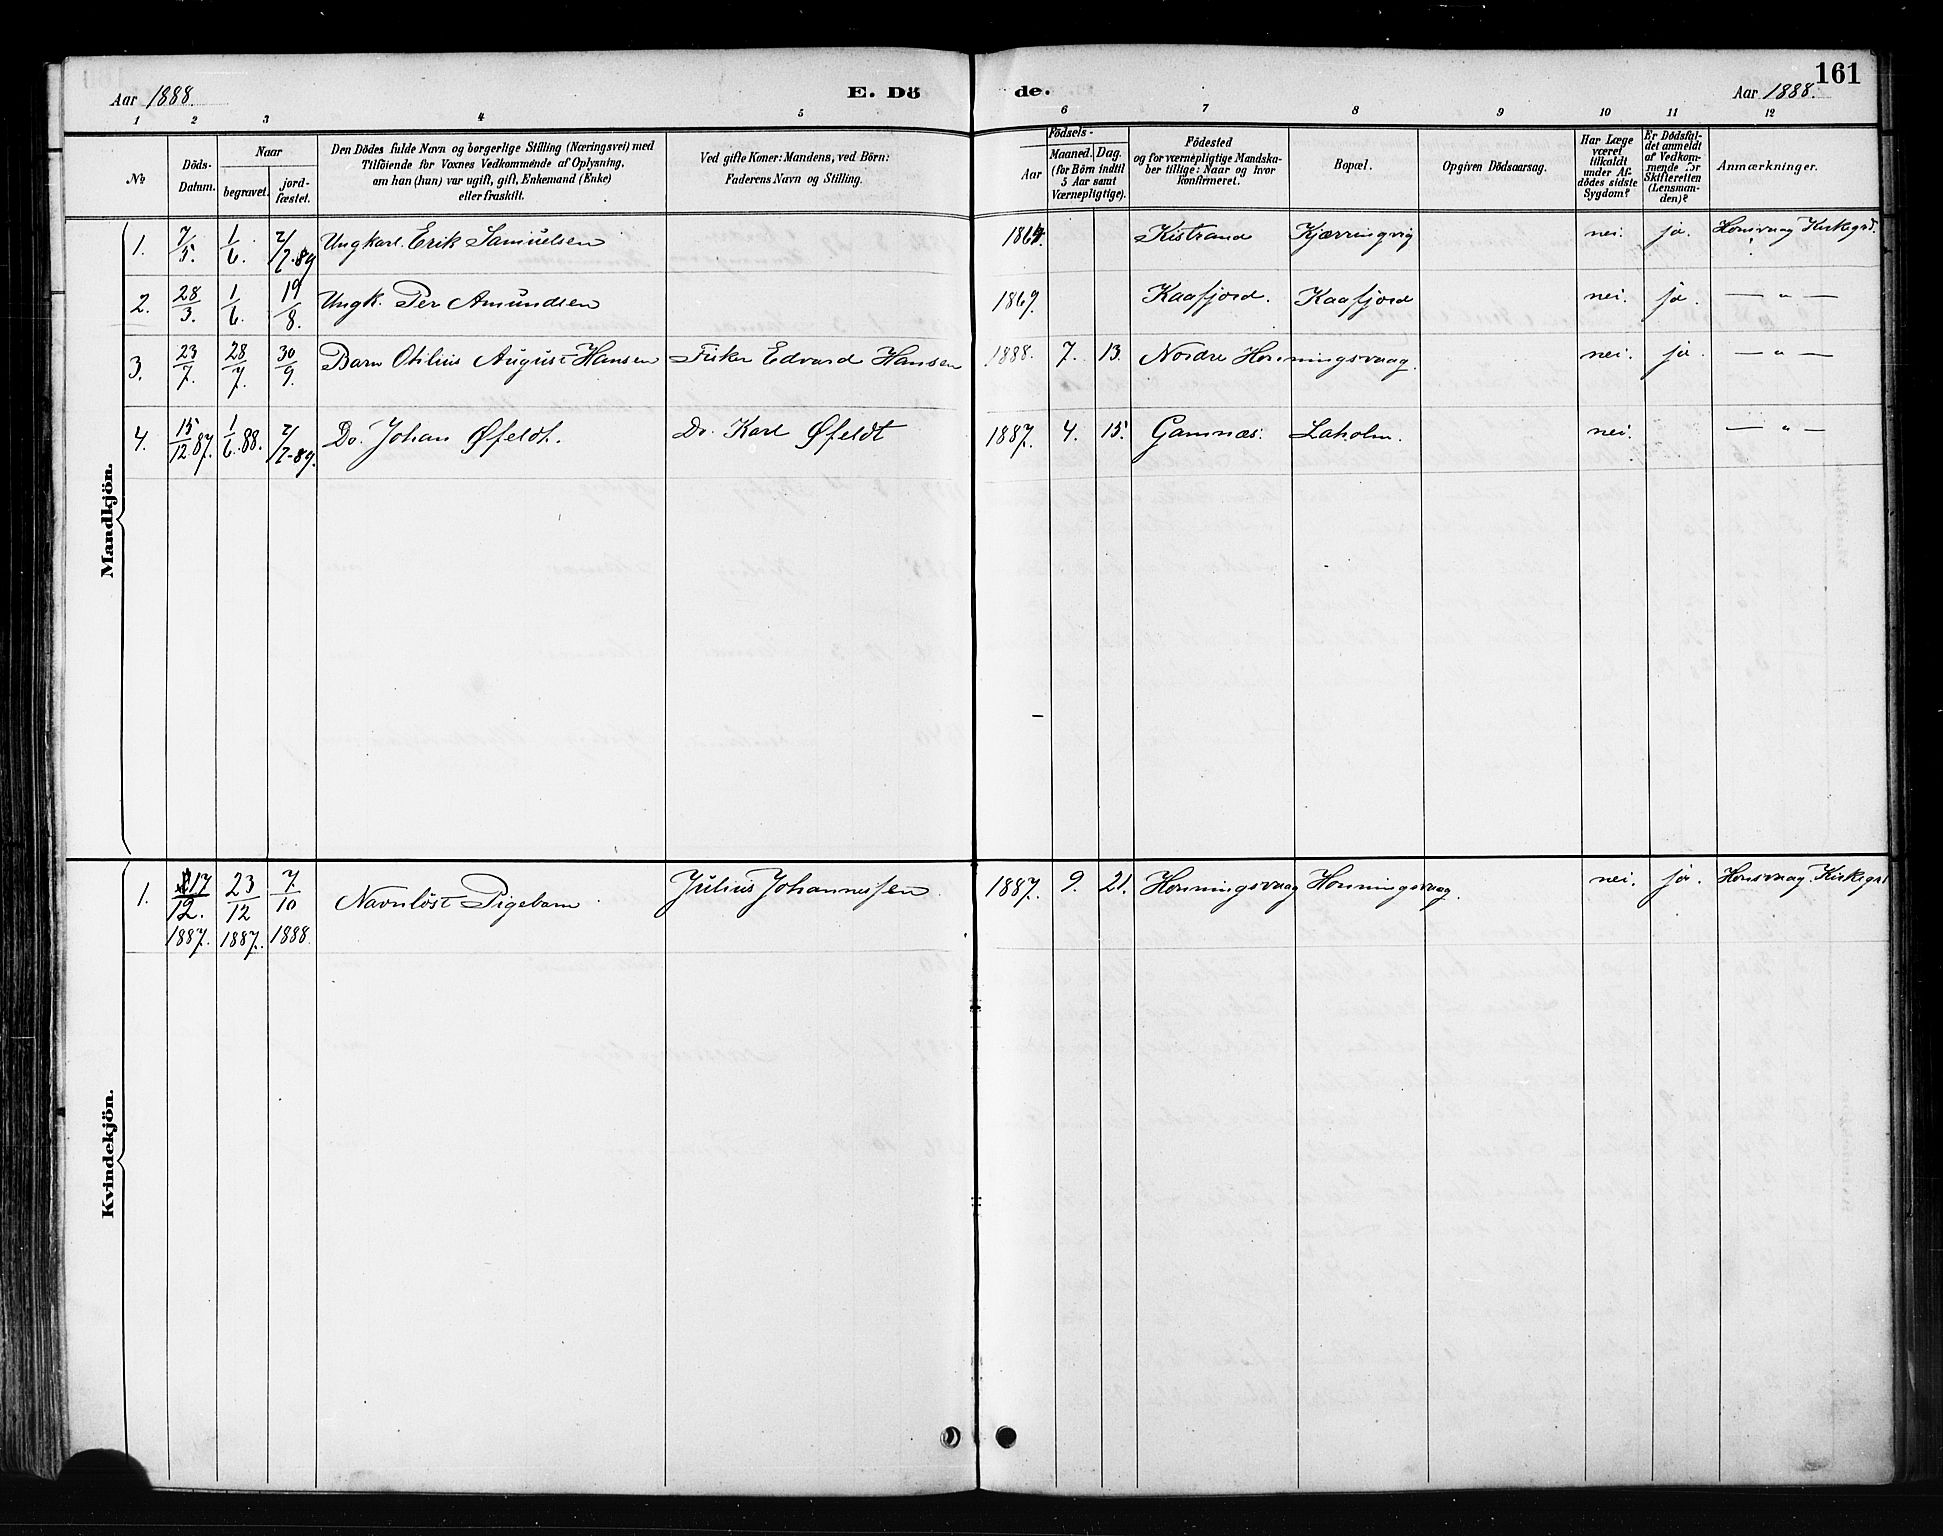 161
Aar 1888. E. Dö de. Aar 1888.
1 2 3 4 5 6 7 8 9 10 11 12
No
Döds-Datum.
Naar
begravet.
jord-fæstet.
Den Dödes fulde Navn og borgerlige Stilling (Næringsvei) med
Tilföiende for Voxnes Vedkommende af Oplysning,
om han (hun) var ugift, gift, Enkemand (Enke)
eller fraskilt.
Ved gifte Koner: Mandens, ved Börn:
Faderens Navn og Stilling.
Födsels-
Aar
Maaned. Dag.
(for Börn indtil
5 Aar samt
Værnepligtige).
Födested
og for værnepligtige Mandska-
ber tillige: Naar og hvor
konfirmeret.
Bopæl.
Opgiven Dödsaarsag.
Har Læge
været
tilkaldt
under Af-
dödes sidste
Sygdom?
Er Dödsfal-
det anmeldt
af Vedkom-
mende for
Skifteretten
(Lensman-
den)?
Anmærkninger.
Mandkjön.
1. 7/5. 1/6. 2/7.89 Ungkarl. Erik Samuelsen 1864. Kistrand Kjærringvig nei. ja. Honsvaag Kirkegrd.
2. 28/3. 1/6. 19/8. Ungk. Per Amundsen 1869. Kaafjord. Kaafjord nei. ja. — " —
3. 23/7. 28/7. 30/9. Barn Otilius August Hansen Fisker Edvard Hansen 1888. 7. 13. Nordre Honningsvaag. nei. ja. — " —
4. 15/12.87. 1/6.88. 2/7.89. Do. Johan Øfeldt. Do. Karl Øfeldt 1887. 4. 15. Gamnæs. Laholm. nei. — " —
Kvindekjön.
1. 17/12. 1887. 23/12 1887. 7/10 1888. Navnløst Pigebarn Julius Johannesen 1887. 9. 21. Honningsvaag Honningsvaag. nei. ja. Honsvaag. Kirkegrd